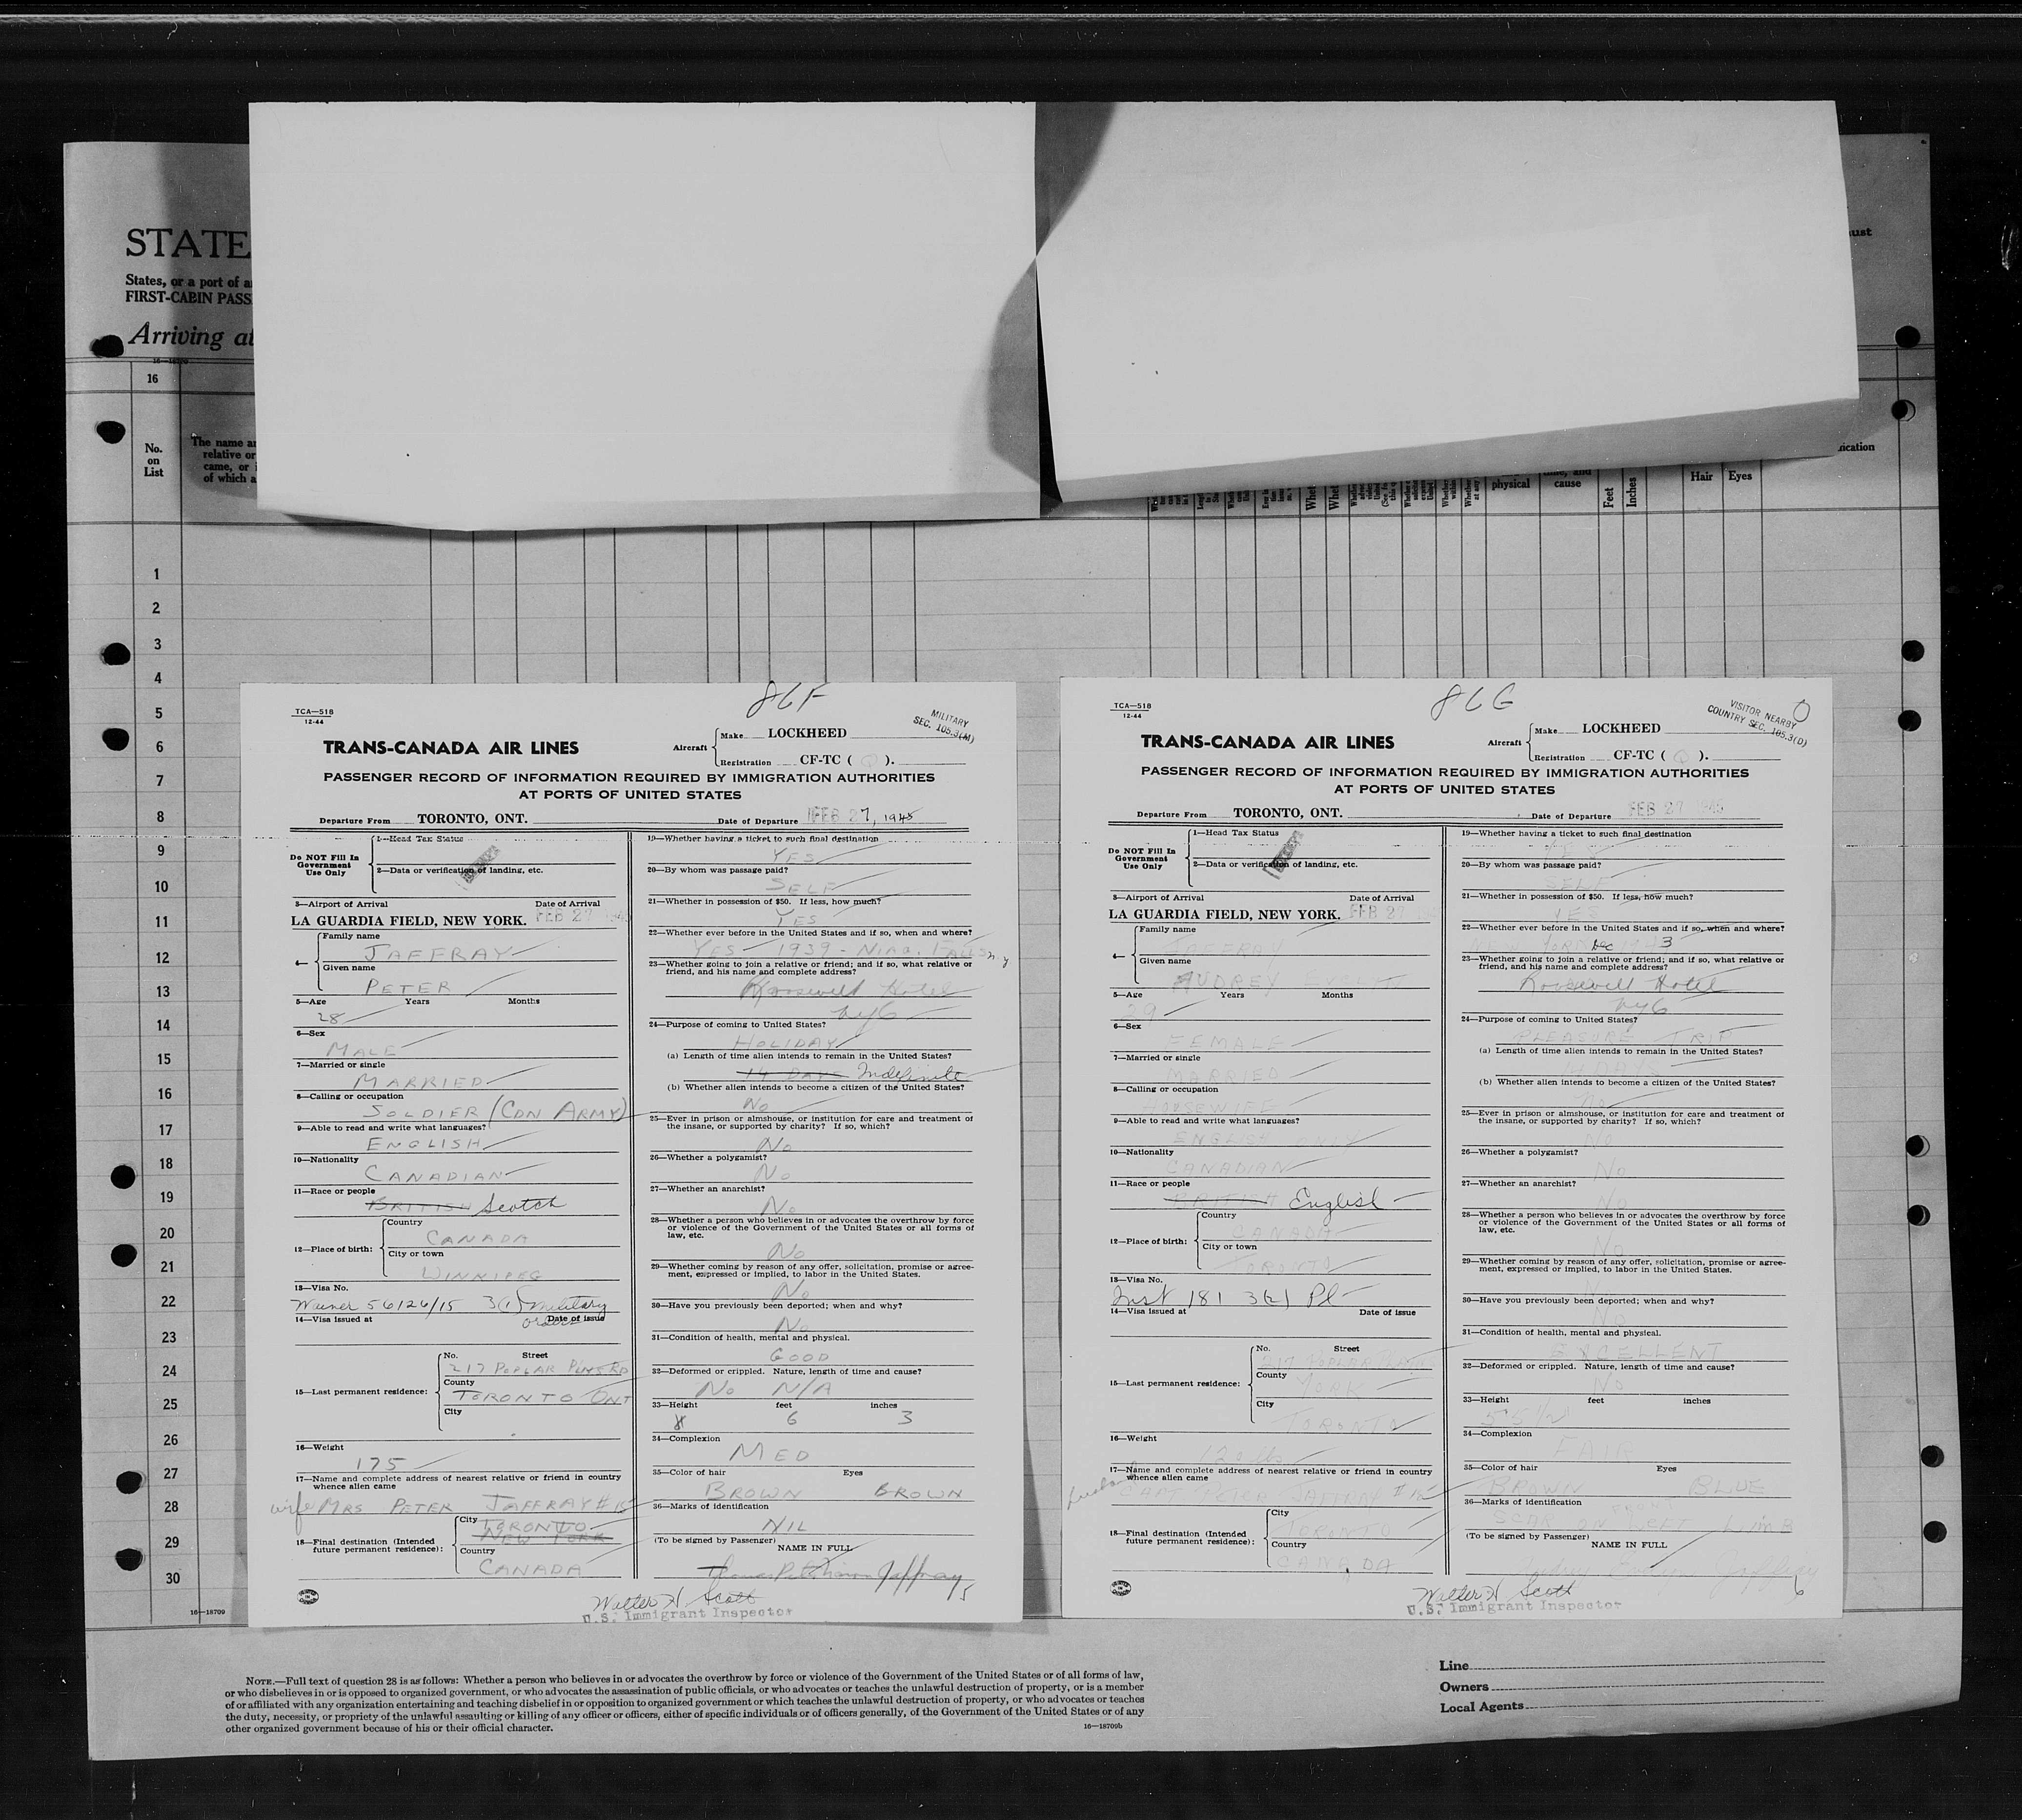 STATE
States, or a port of a
FIRST-CABIN PASS
Arriving at
16
No.
on
List
The name a
relative or
came, or
of which a
ust
ication
physical
time, and
cause
Feet
Inches
Hair
Eyes
1
2
3
4
5
6
7
8
9
10
11
12
13
14
15
16
17
18
19
20
21
22
23
24
25
26
27
28
29
30
16—18709
86F
TCA—518
12-44
MILITARY
SEC. 105.3(M)
TRANS-CANADA AIR LINES
Aircraft
Make LOCKHEED
Registration CF-TC ( Q ).
PASSENGER RECORD OF INFORMATION REQUIRED BY IMMIGRATION AUTHORITIES
AT PORTS OF UNITED STATES
Departure From TORONTO, ONT. Date of Departure FEB 27, 1945
Do NOT Fill In
Government
Use Only
1—Head Tax Status
2—Data or verification of landing, etc.
3—Airport of Arrival Date of Arrival
LA GUARDIA FIELD, NEW YORK. FEB 27 1945
4—
Family name
JAFFRAY
Given name
PETER
5—Age Years Months
28
6—Sex
MALE
7—Married or single
MARRIED
8—Calling or occupation
SOLDIER (CDN ARMY)
9—Able to read and write what languages?
ENGLISH
10—Nationality
CANADIAN
11—Race or people
BRITISH Scotch
12—Place of birth:
Country
CANADA
City or town
WINNIPEG
13—Visa No.
56126/15 3(1) Military
orders
14—Visa issued at Date of issue
15—Last permanent residence:
No. Street
217 POPLAR PLNS RD
County
TORONTO ONT
City
16—Weight
175
17—Name and complete address of nearest relative or friend in country
whence alien came
wife MRS PETER JAFFRAY #15
18—Final destination (Intended
future permanent residence):
City
TORONTO
NEW YORK
Country
CANADA
19—Whether having a ticket to such final destination
YES
20—By whom was passage paid?
SELF
21—Whether in possession of $50. If less, how much?
YES
22—Whether ever before in the United States and if so, when and where?
YES - 1939 - NIAG. FALLS N.Y
23—Whether going to join a relative or friend; and if so, what relative or
friend, and his name and complete address?
Roosevelt Hotel
NYC
24—Purpose of coming to United States?
HOLIDAY
(a) Length of time alien intends to remain in the United States?
14 DAYS Indefinite
(b) Whether alien intends to become a citizen of the United States?
No
25—Ever in prison or almshouse, or institution for care and treatment of
the insane, or supported by charity? If so, which?
No
26—Whether a polygamist?
No
27—Whether an anarchist?
No
28—Whether a person who believes in or advocates the overthrow by force
or violence of the Government of the United States or all forms of
law, etc.
No
29—Whether coming by reason of any offer, solicitation, promise or agree-
ment, expressed or implied, to labor in the United States.
No
30—Have you previously been deported; when and why?
No
31—Condition of health, mental and physical.
GOOD
32—Deformed or crippled. Nature, length of time and cause?
No N/A
33—Height feet inches
6 3
34—Complexion
MED
35—Color of hair Eyes
BROWN BROWN
36—Marks of identification
NIL
(To be signed by Passenger)
NAME IN FULL
Jaffray
5
Walter H Scott
U.S. Immigrant Inspector
86G
TCA—518
12-44
VISITOR NEARBY
COUNTRY SEC. 105.3(D)
TRANS-CANADA AIR LINES
Aircraft
Make LOCKHEED
Registration CF-TC ( Q ).
PASSENGER RECORD OF INFORMATION REQUIRED BY IMMIGRATION AUTHORITIES
AT PORTS OF UNITED STATES
Departure From TORONTO, ONT. Date of Departure FEB 27 1945
Do NOT Fill In
Government
Use Only
1—Head Tax Status
2—Data or verification of landing, etc.
3—Airport of Arrival Date of Arrival
LA GUARDIA FIELD, NEW YORK. FEB 27
4—
Family name
JAFFRAY
Given name
AUDREY
5—Age Years Months
29
6—Sex
FEMALE
7—Married or single
MARRIED
8—Calling or occupation
HOUSEWIFE
9—Able to read and write what languages?
ENGLISH ONLY
10—Nationality
CANADIAN
11—Race or people
BRITISH English
12—Place of birth:
Country
CANADA
City or town
TORONTO
13—Visa No.
Inst 181 3(2) Pl
14—Visa issued at Date of issue
15—Last permanent residence:
No. Street
217 POPLAR PLNS
County
YORK
City
TORONTO
16—Weight
120 lbs
17—Name and complete address of nearest relative or friend in country
whence alien came
husband CAPT PETER JAFFRAY #15
18—Final destination (Intended
future permanent residence):
City
TORONTO
Country
CANADA
19—Whether having a ticket to such final destination
YES
20—By whom was passage paid?
SELF
21—Whether in possession of $50. If less, how much?
YES
22—Whether ever before in the United States and if so, when and where?
NEW YORK Dec 1943
23—Whether going to join a relative or friend; and if so, what relative or
friend, and his name and complete address?
Roosevelt Hotel
NYC
24—Purpose of coming to United States?
PLEASURE TRIP
(a) Length of time alien intends to remain in the United States?
14 DAYS
(b) Whether alien intends to become a citizen of the United States?
No
25—Ever in prison or almshouse, or institution for care and treatment of
the insane, or supported by charity? If so, which?
No
26—Whether a polygamist?
No
27—Whether an anarchist?
No
28—Whether a person who believes in or advocates the overthrow by force
or violence of the Government of the United States or all forms of
law, etc.
No
29—Whether coming by reason of any offer, solicitation, promise or agree-
ment, expressed or implied, to labor in the United States.
30—Have you previously been deported; when and why?
No
31—Condition of health, mental and physical.
EXCELLENT
32—Deformed or crippled. Nature, length of time and cause?
No
33—Height feet inches
5 5 1/2
34—Complexion
FAIR
35—Color of hair Eyes
BROWN BLUE
36—Marks of identification
SCAR ON LEFT
(To be signed by Passenger)
NAME IN FULL
6
Walter H Scott
U.S. Immigrant Inspector
NOTE.—Full text of question 28 is as follows: Whether a person who believes in or advocates the overthrow by force or violence of the Government of the United States or of all forms of law,
or who disbelieves in or is opposed to organized government, or who advocates the assassination of public officials, or who advocates or teaches the unlawful destruction of property, or is a member
of or affiliated with any organization entertaining and teaching disbelief in or opposition to organized government or which teaches the unlawful destruction of property, or who advocates or teaches
the duty, necessity, or propriety of the unlawful assaulting or killing of any officer or officers, either of specific individuals or of officers generally, of the Government of the United States or of any
other organized government because of his or their official character.
16—18709b
Line
Owners
Local Agents